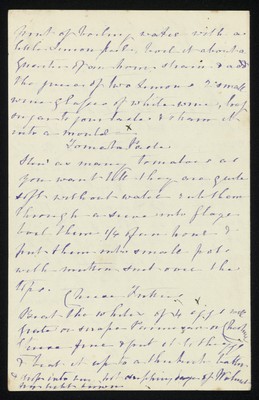 pint of boiling water with a
little lemon peel, boil it about a
quarter of an hour, strain & add
the juice of two lemons 2 small
wine glasses of white wine,
sugar to your taste & strain it
into a mould
x
Tomata Paste
Stew as many tomatoes as
you want till they are quite
soft without water rub them
through a sieve into
boil them 1/4 of an hour &
put them into small pots
with mutton suet over the
tops.
Cheese Fritters x
Beat the whites of 4 eggs
grate or scrape Parmezan or Cheshire
Cheese fine & put it to the
& beat it up to a thickish batter
drop into